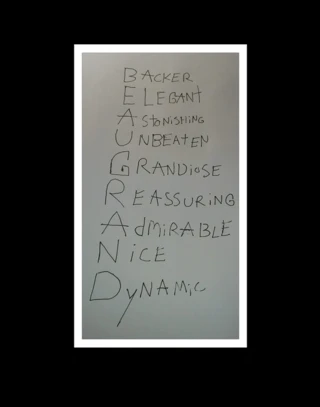 BACKER
ELEGANT
AStONISHING
UNBEAtEN
GRANDiOSE
REASSURING
AdMiRABLE
NiCE
DyNAMiC